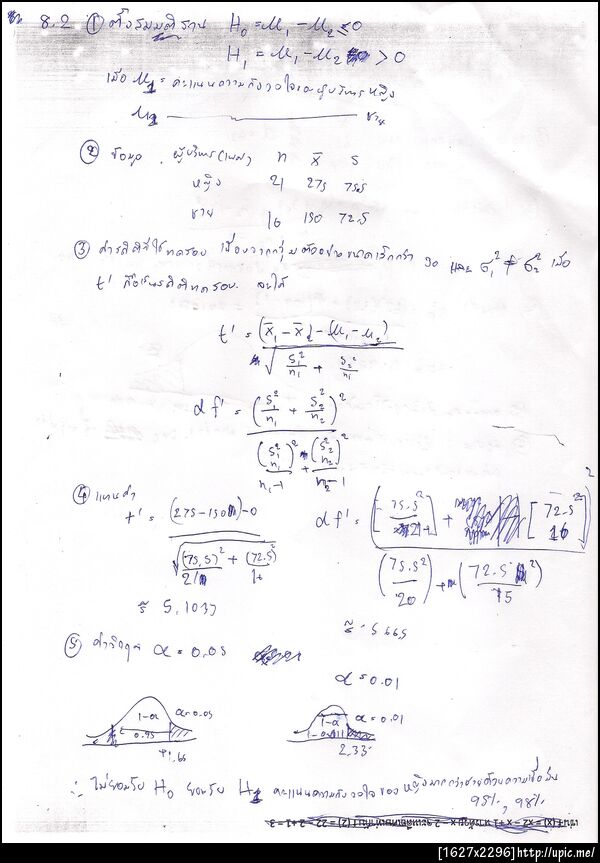 8.2 ① ตั้งสมมติฐาน H₀ = μ₁ - μ₂ ≤ 0
H₁ = μ₁ - μ₂ > 0
เมื่อ μ₁ = คะแนนความกังวลใจของผู้บริหารหญิง
μ₂ ชาย
② ข้อมูล ผู้บริหาร (เพศ) n x̄ s
หญิง 21 275 75.5
ชาย 16 150 72.5
③ ค่าสถิติที่ใช้ทดสอบ เนื่องจากกลุ่มตัวอย่างขนาดเล็กกว่า 30 และ σ₁² ≠ σ₂² เมื่อ
t' คือ สถิติทดสอบ จะได้
t' = (x̄₁ - x̄₂) - (μ₁ - μ₂)
√ s₁²/n₁ + s₂²/n₁
df' = (s₁²/n₁ + s₂²/n₂)²
(s₁²/n₁)²/n₁-1 + (s₂²/n₂)²/n₂-1
④ แทนค่า
t' = (275-150)-0
√ (75.5)²/21 + (72.5)²/16
df' = ([75.5²/21] + [72.5²/16])²
(75.5²/20) + (72.5²/15)
≈ 5.1037
≈ 5.665
⑤ ค่าวิกฤต α = 0.05
α = 0.01
1-α α=0.05
0.95
1-α α=0.01
2.33
∴ ไม่ยอมรับ H₀ ยอมรับ H₁ คะแนนความกังวลใจของหญิงมากกว่าชายด้วยความเชื่อมั่น
95%, 98%
[1627x2296]http://upic.me/